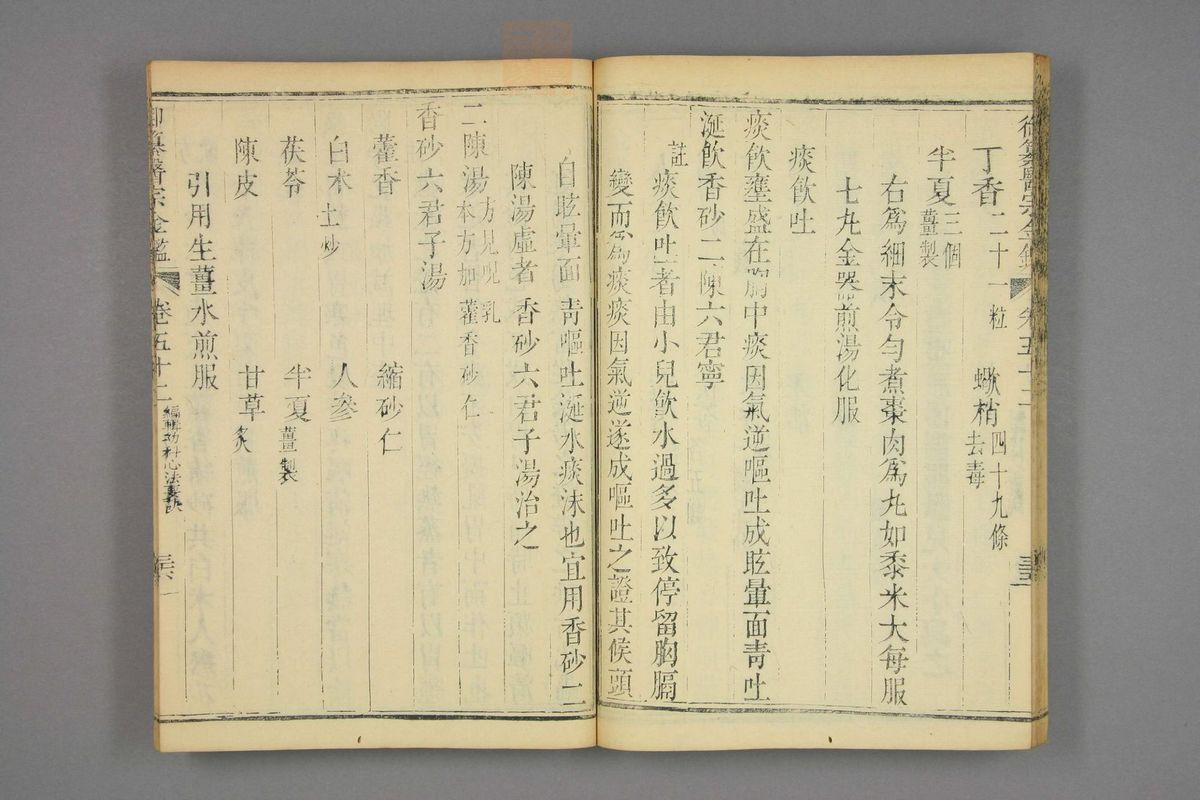 丁香二十一粒 蠍梢四十九條去毒
半夏三個薑製
右爲細末令勻煮棗肉爲丸如黍米大每服
七丸金器煎湯化服
痰飲吐
痰飲壅盛在胸中痰因氣逆嘔吐成眩暈面靑吐
涎飲香砂二陳六君寧
註痰飲吐者由小兒飲水過多以致停留胸膈
變而爲痰痰因氣逆遂成嘔吐之證其候頭
目眩暈面靑嘔吐涎水痰沫也宜用香砂二
陳湯虛者香砂六君子湯治之
二陳湯方見呪乳本方加藿香砂仁
香砂六君子湯
藿香 縮砂仁
白朮土炒 人參
茯苓 半夏薑製
陳皮 甘草炙
引用生薑水煎服
御纂醫宗金鑑 卷五十二 編輯幼科心法要訣